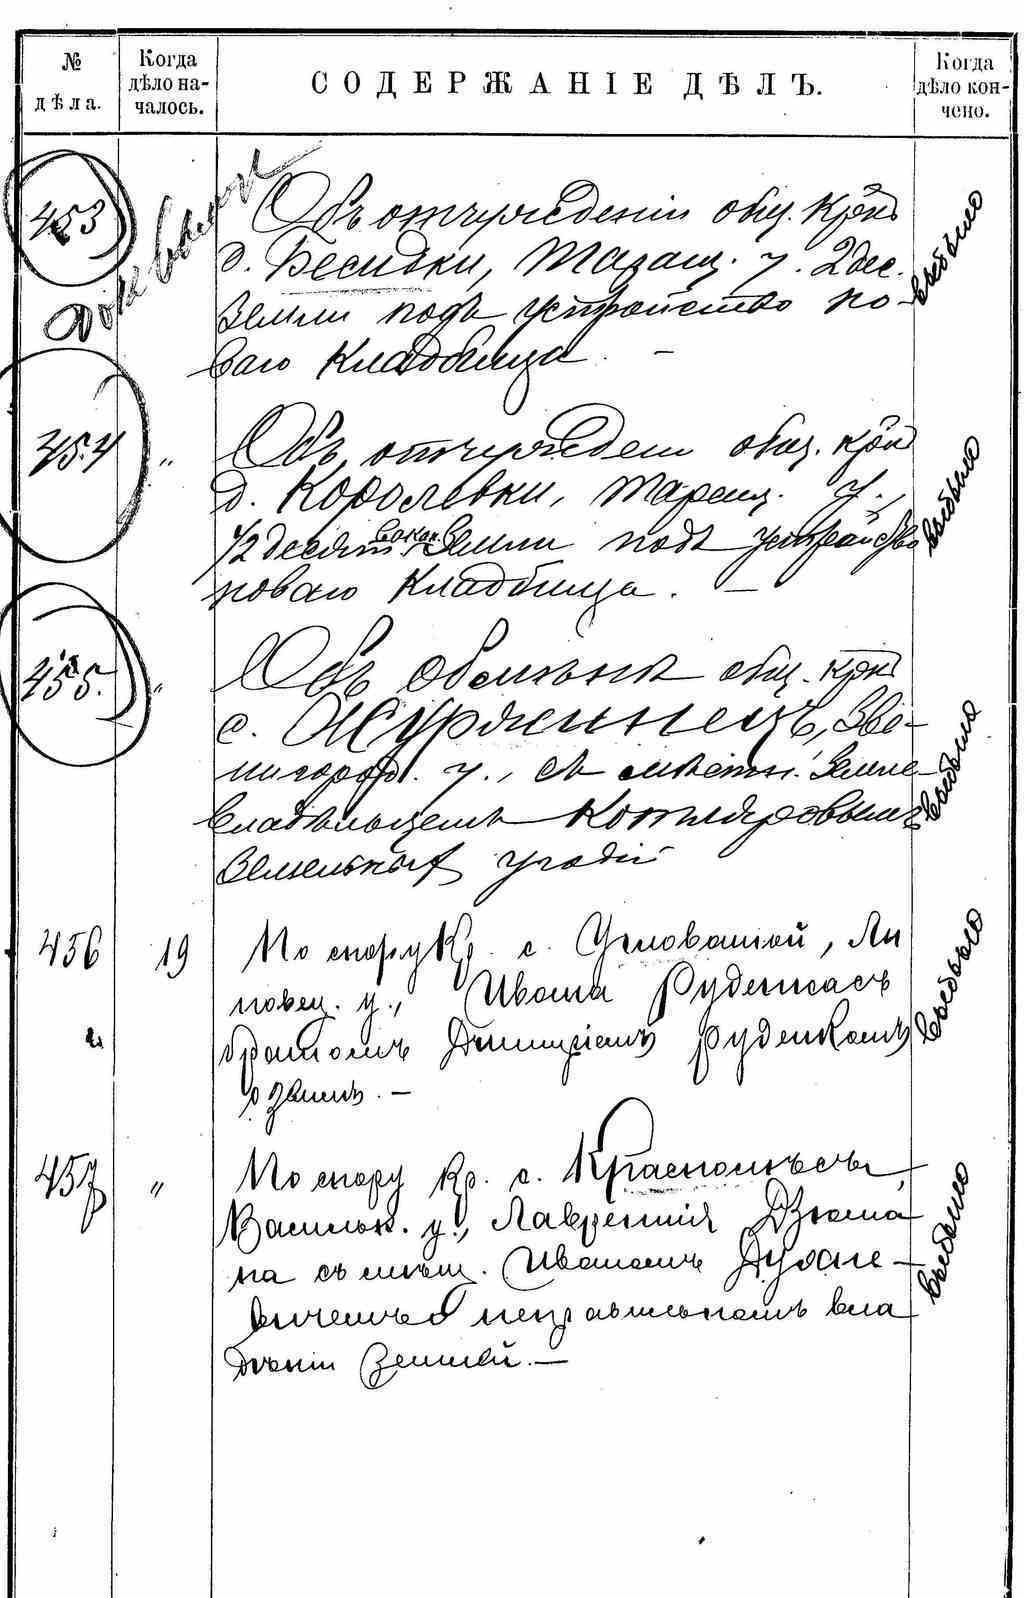 № дѣла.
Когда дѣло началось.
СОДЕРЖАНІЕ ДѢЛЪ.
Когда дѣло кончено.
453
Объ отчужденіи общ. крян
д. Бесидки, Таращ. у. 2 дес.
земли подъ устройство но-
ваго кладбища. —
выбыло
454 „
Объ отчужден общ. крян
д. Королевки, Таращ. у.,
1/2 десят земли подъ устройство
новаго кладбища. —
выбыло
455. „
Объ обмѣнѣ общ. крян
с. Журжинецъ, Зве-
нигород. у., съ мѣстн. земле-
владѣльцемъ Котляровымъ
земельныхъ угодій
выбыло
456 19
По спору кр. с. Угловатой, Ли
повец. у., Ивана Руденка съ
братомъ Дмитріемъ Руденкомъ
о землѣ. —
выбыло
457 „
По спору кр. с. Краснолѣсъ,
Васильк. у., Лаврентія Дзюма
на съ мѣщ. Иваномъ Духне-
вичемъ о неправильномъ вла
дѣніи землей. —
выбыло